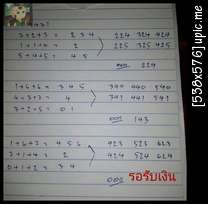 3+2+3 = 2 3 4
224 324 424
1+1+4 = 2
225 325 425
5+4+5 = 4 5
ออก 224
1+6+6 = 3 4 5
340 440 540
4+3+3 = 4
341 441 541
3+2+5 = 0 1
ออก 143
1+6+3 = 4 5 6
423 523 623
3+1+4 = 2
424 524 624
0+1+2 = 3 4
ออก รอรับเงิน
[538x576]upic.me